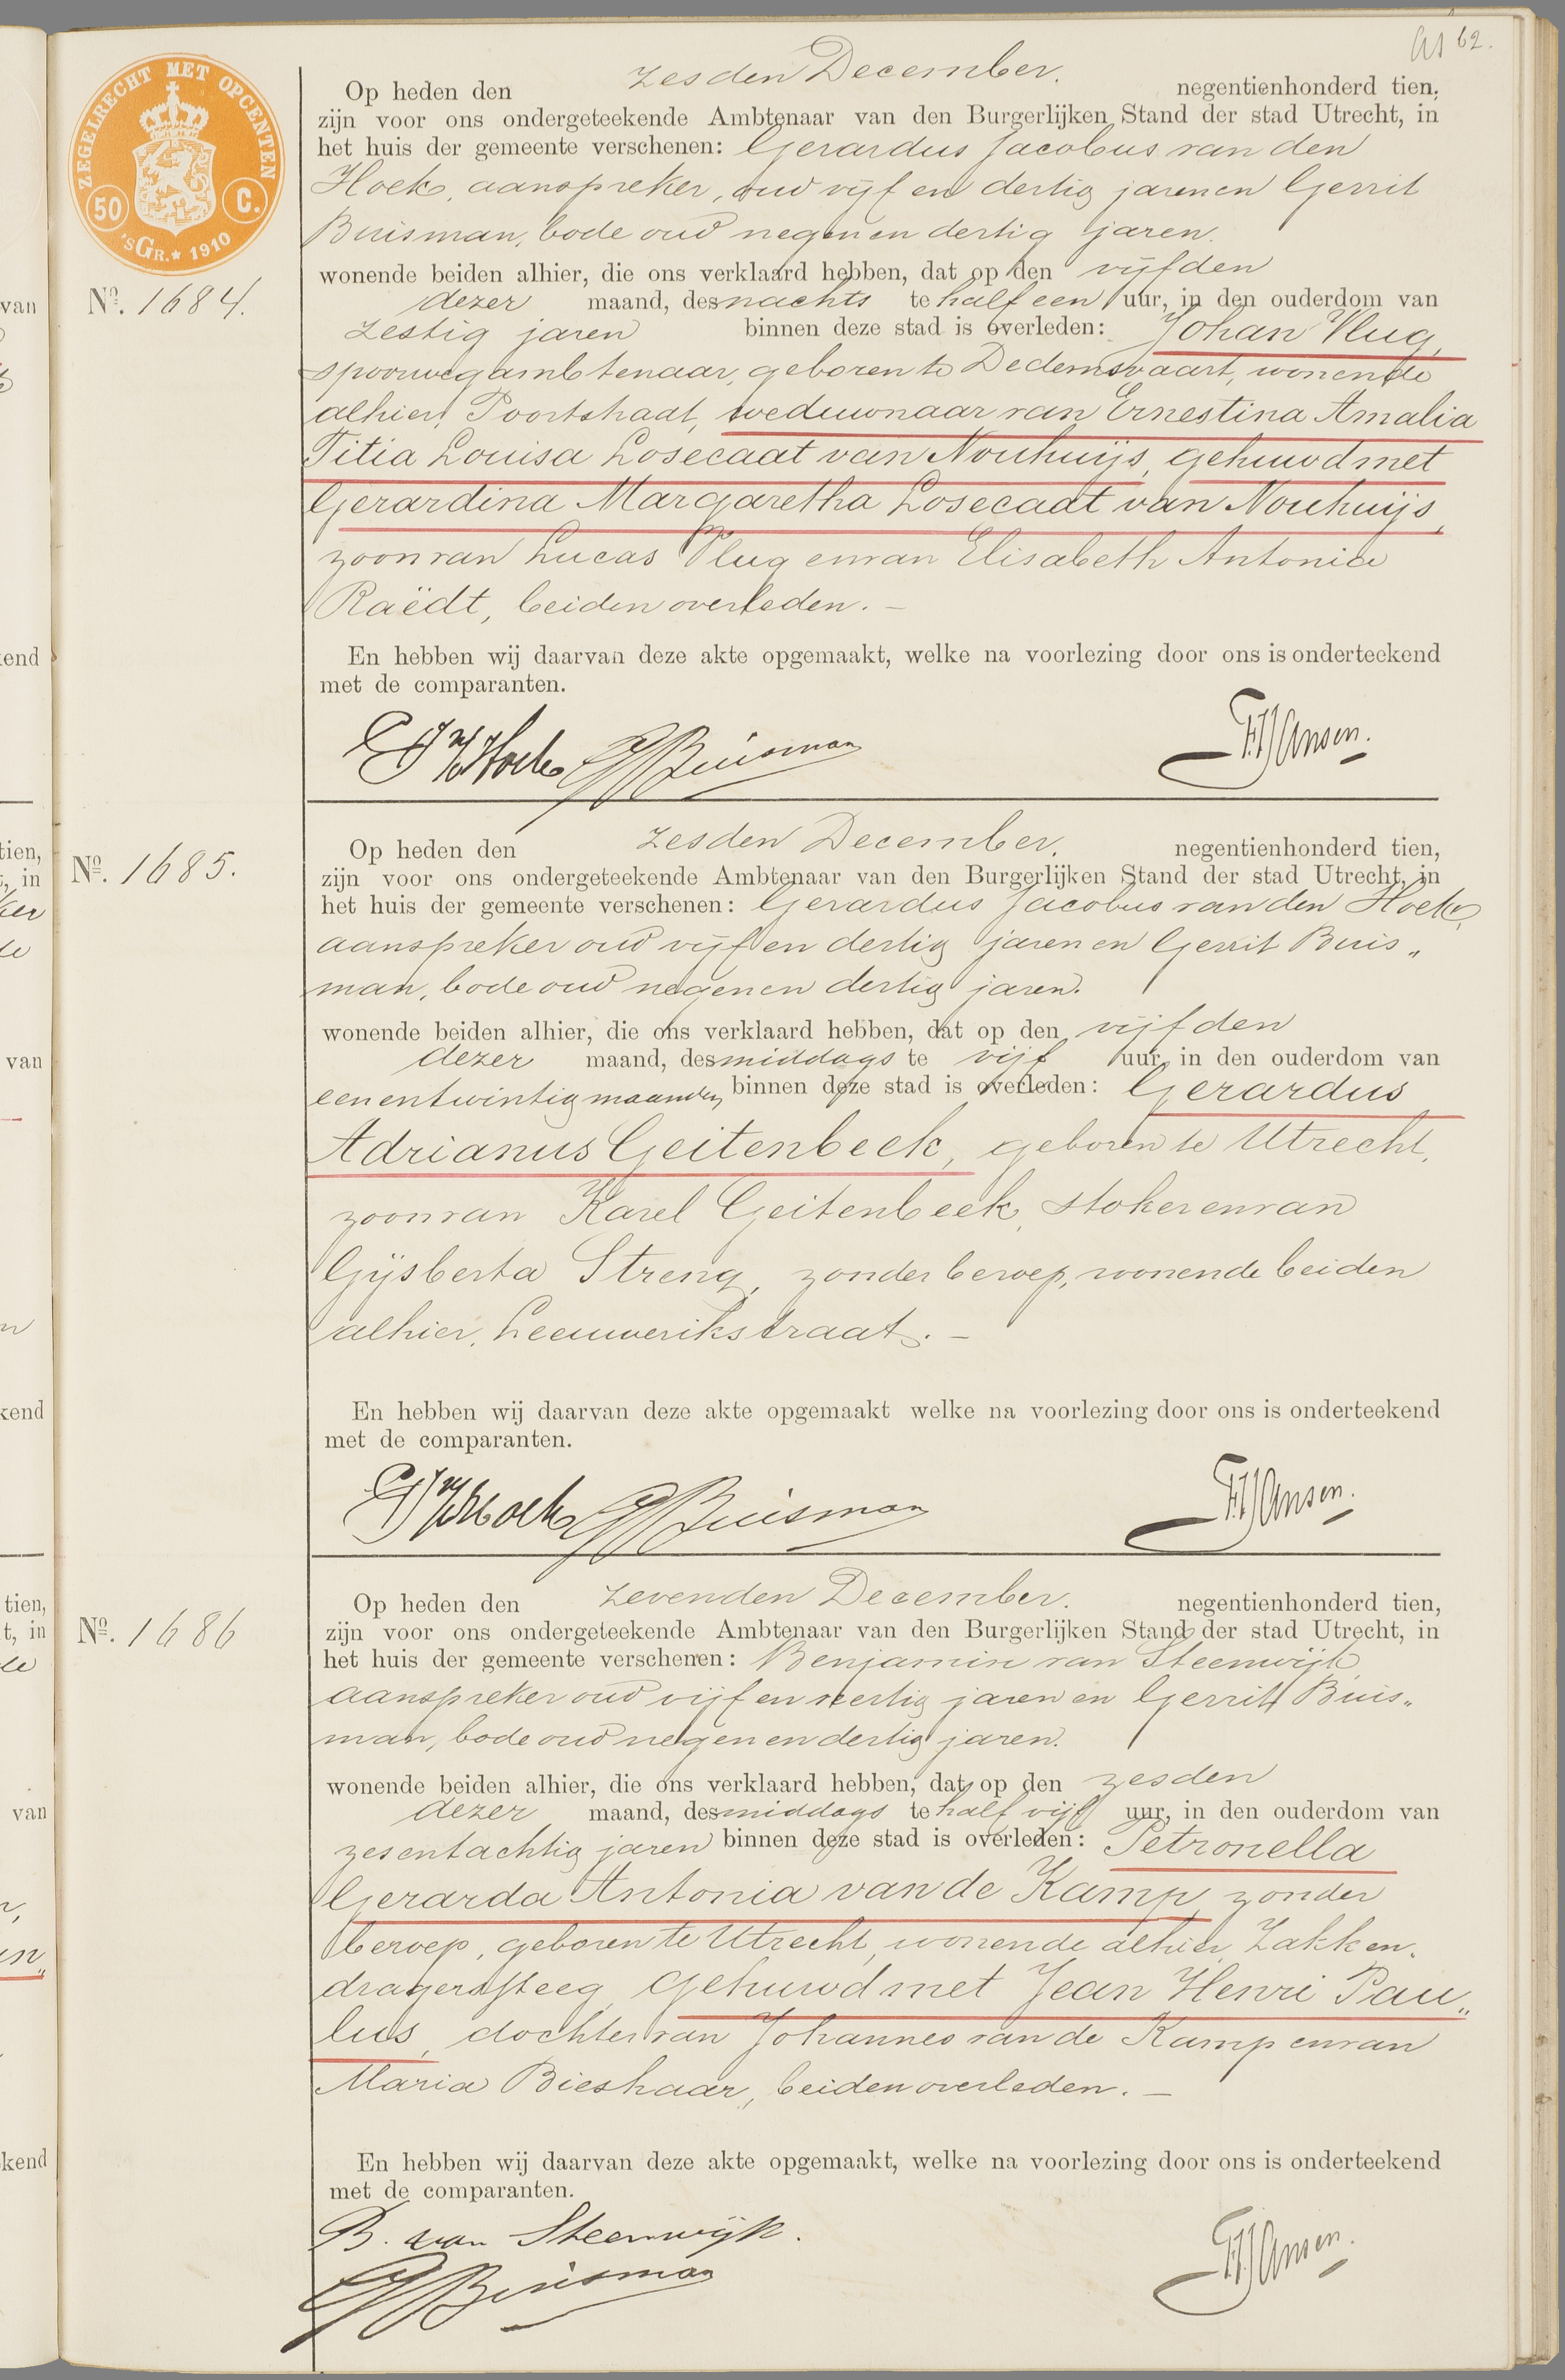 62.
ZEGELRECHT MET OPCENTEN
50 C.
'sGR.★ 1910
Op heden den zesden December. negentienhonderd tien,
zijn voor ons ondergeteekende Ambtenaar van den Burgerlijken Stand der stad Utrecht, in
het huis der gemeente verschenen: Gerardus Jacobus van den
Hoek, aanspreker, oud vijf en dertig jaren en Gerrit
Buisman, bode oud negen en dertig jaren.
wonende beiden alhier, die ons verklaard hebben, dat op den vijfden
Nº. 1684.
dezer maand, des nachts te half een uur, in den ouderdom van
zestig jaren binnen deze stad is overleden: Johan Vlug,
spoorwegambtenaar, geboren te Dedemsvaart, wonende
alhier, Poortstraat, weduwnaar van Ernestina Amalia
Titia Louisa Losecaat van Nouhuijs, gehuwd met
Gerardina Margaretha Losecaat van Nouhuijs,
zoon van Lucas Vlug en van Elisabeth Antonia
Raëdt, beiden overleden. —
En hebben wij daarvan deze akte opgemaakt, welke na voorlezing door ons is onderteekend
met de comparanten.
GJvdHoek GBuisman F.Jansen.
Op heden den zesden December. negentienhonderd tien,
Nº. 1685.
zijn voor ons ondergeteekende Ambtenaar van den Burgerlijken Stand der stad Utrecht, in
het huis der gemeente verschenen: Gerardus Jacobus van den Hoek,
aanspreker oud vijf en dertig jaren en Gerrit Buis„
man, bode oud negen en dertig jaren.
wonende beiden alhier, die ons verklaard hebben, dat op den vijfden
dezer maand, des middags te vijf uur, in den ouderdom van
een en twintig maanden binnen deze stad is overleden: Gerardus
Adrianus Geitenbeek, geboren te Utrecht,
zoon van Karel Geitenbeek, stoker en van
Gijsberta Streng, zonder beroep, wonende beiden
alhier, Leeuwerikstraat. —
En hebben wij daarvan deze akte opgemaakt welke na voorlezing door ons is onderteekend
met de comparanten.
GJvdHoek GBuisman F.Jansen.
Op heden den zevenden December. negentienhonderd tien,
Nº. 1686
zijn voor ons ondergeteekende Ambtenaar van den Burgerlijken Stand der stad Utrecht, in
het huis der gemeente verschenen: Benjamin van Steenwijk,
aanspreker oud vijf en veertig jaren en Gerrit Buis„
man, bode oud negen en dertig jaren.
wonende beiden alhier, die ons verklaard hebben, dat op den zesden
dezer maand, des middags te half vijf uur, in den ouderdom van
zes en tachtig jaren binnen deze stad is overleden: Petronella
Gerarda Antonia van de Kamp, zonder
beroep, geboren te Utrecht, wonende alhier, Zakken„
dragerssteeg, gehuwd met Jean Henri Pau„
lus, dochter van Johannes van de Kamp en van
Maria Bieshaar, beiden overleden. —
En hebben wij daarvan deze akte opgemaakt, welke na voorlezing door ons is onderteekend
met de comparanten.
B. van Steenwijk.
GBuisman F.Jansen.